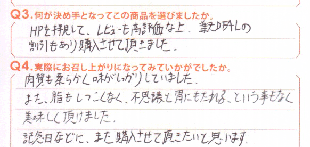 Q3.何が決め手となってこの商品を選びましたか。
HPを拝見して、レビューも高評価など、
割引もあり購入させて頂きました。
Q4.実際にお召し上がりになってみていかがでしたか。
肉質も柔らかく味がしっかりしていました。
また、脂もしつこくなく、不思議と胃にもたれる、という事もなく
美味しく頂けました。
記念日などに、また購入させて頂きたいと思います。